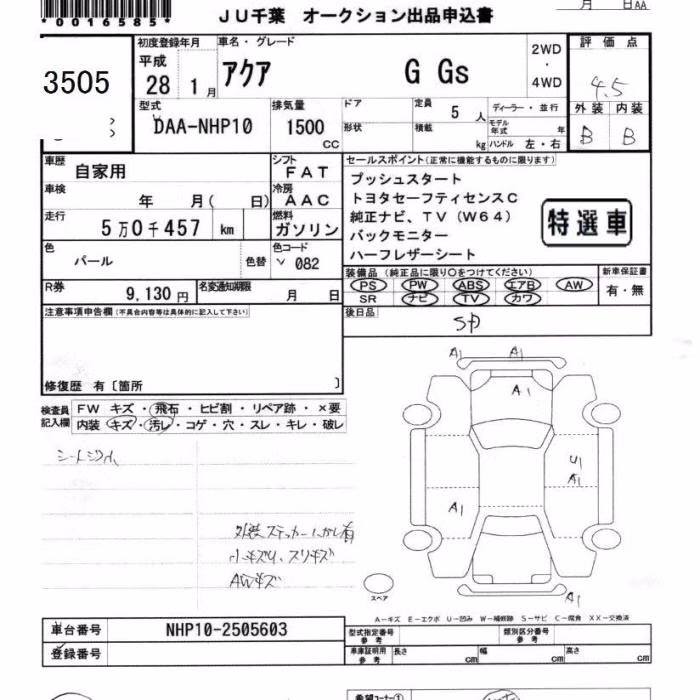 *0016585*
JU千葉 オークション出品申込書
月 日AA
3505
初度登録年月 車名・グレード 2WD・4WD 評価点
平成 28 1月 アクア G Gs 4.5
外装 内装
B B
型式 排気量 ドア 定員 5人 ディーラー・並行
DAA-NHP10 1500 CC 形状 積載 kg モデル年式 年
ハンドル 左・右
車歴 自家用 シフト FAT セールスポイント(正常に機能するものに限ります)
車検 年 月( 日) 冷房 AAC プッシュスタート
トヨタセーフティセンスC
走行 5万0千457 km 燃料 ガソリン 純正ナビ、TV(W64)
特選車
バックモニター
色 パール 色替 色コード 082 ハーフレザーシート
装備品(純正品に限り○をつけてください) 新車保証書
R券 9,130円 名変通知期限 月 日 PS PW ABS エアB AW 有・無
SR ナビ TV カワ
注意事項申告欄(不具合内容等は具体的に記入して下さい) 後日品
SD
修復歴 有〔箇所 〕
検査員記入欄 FW キズ・飛石・ヒビ割・リペア跡・×要
内装 キズ・汚レ・コゲ・穴・スレ・キレ・破レ
A1 A1
A1
U1
A1
A1
外装ステッカーはがし有
小キズU、スリキズ
AWキズ
スペア
A1
A−キズ E−エクボ U−凹み W−補修跡 S−サビ C−腐食 XX−交換済
車台番号 NHP10-2505603 型式指定番号 参考 類別区分番号 参考
登録番号 車庫証明用 参考 長さ cm 幅 cm 高さ cm
希望コーナー①